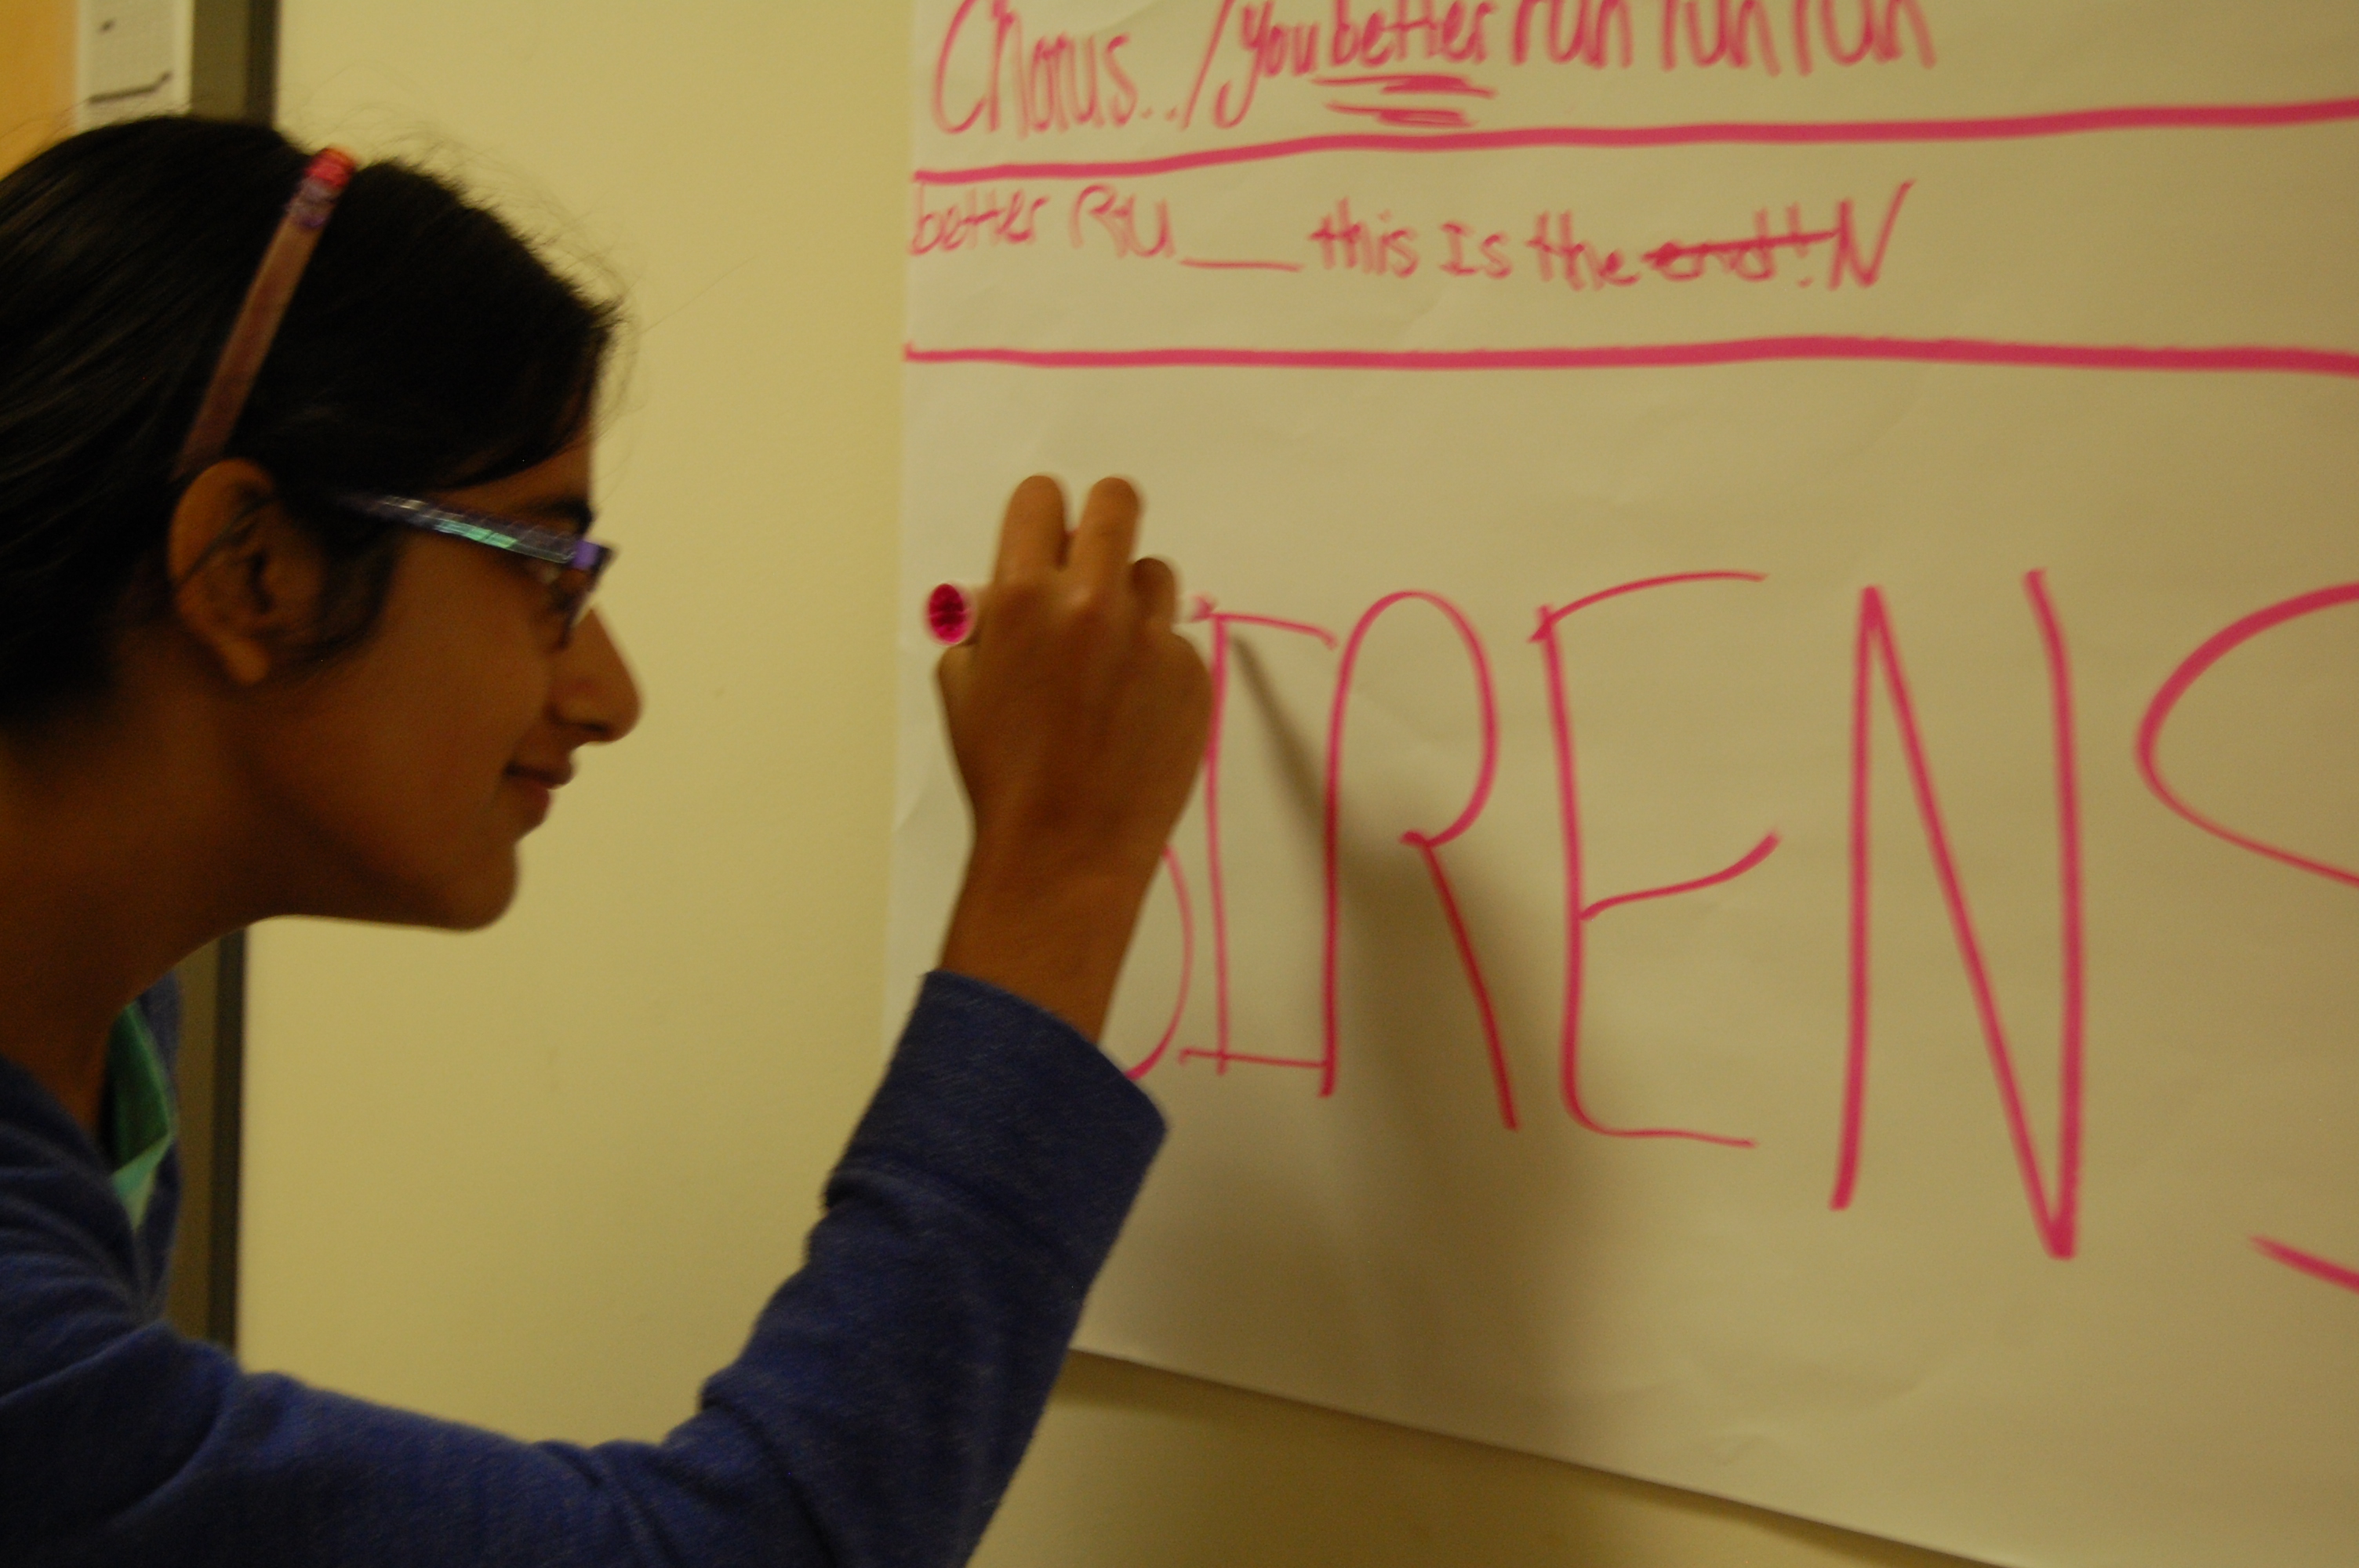 Chorus../you better run run run
better RU__ this Is the end! N
SIRENS